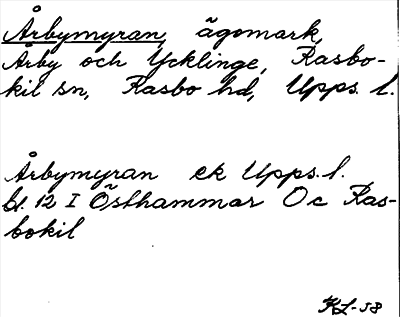 Årbymyran, ägomark,
Årby och Ycklinge, Rasbo-
kil sn, Rasbo hd, Upps. l.
Årbymyran ek Upps. l.
bl. 12 I Östhammar Oc Ras-
bokil
KL-58